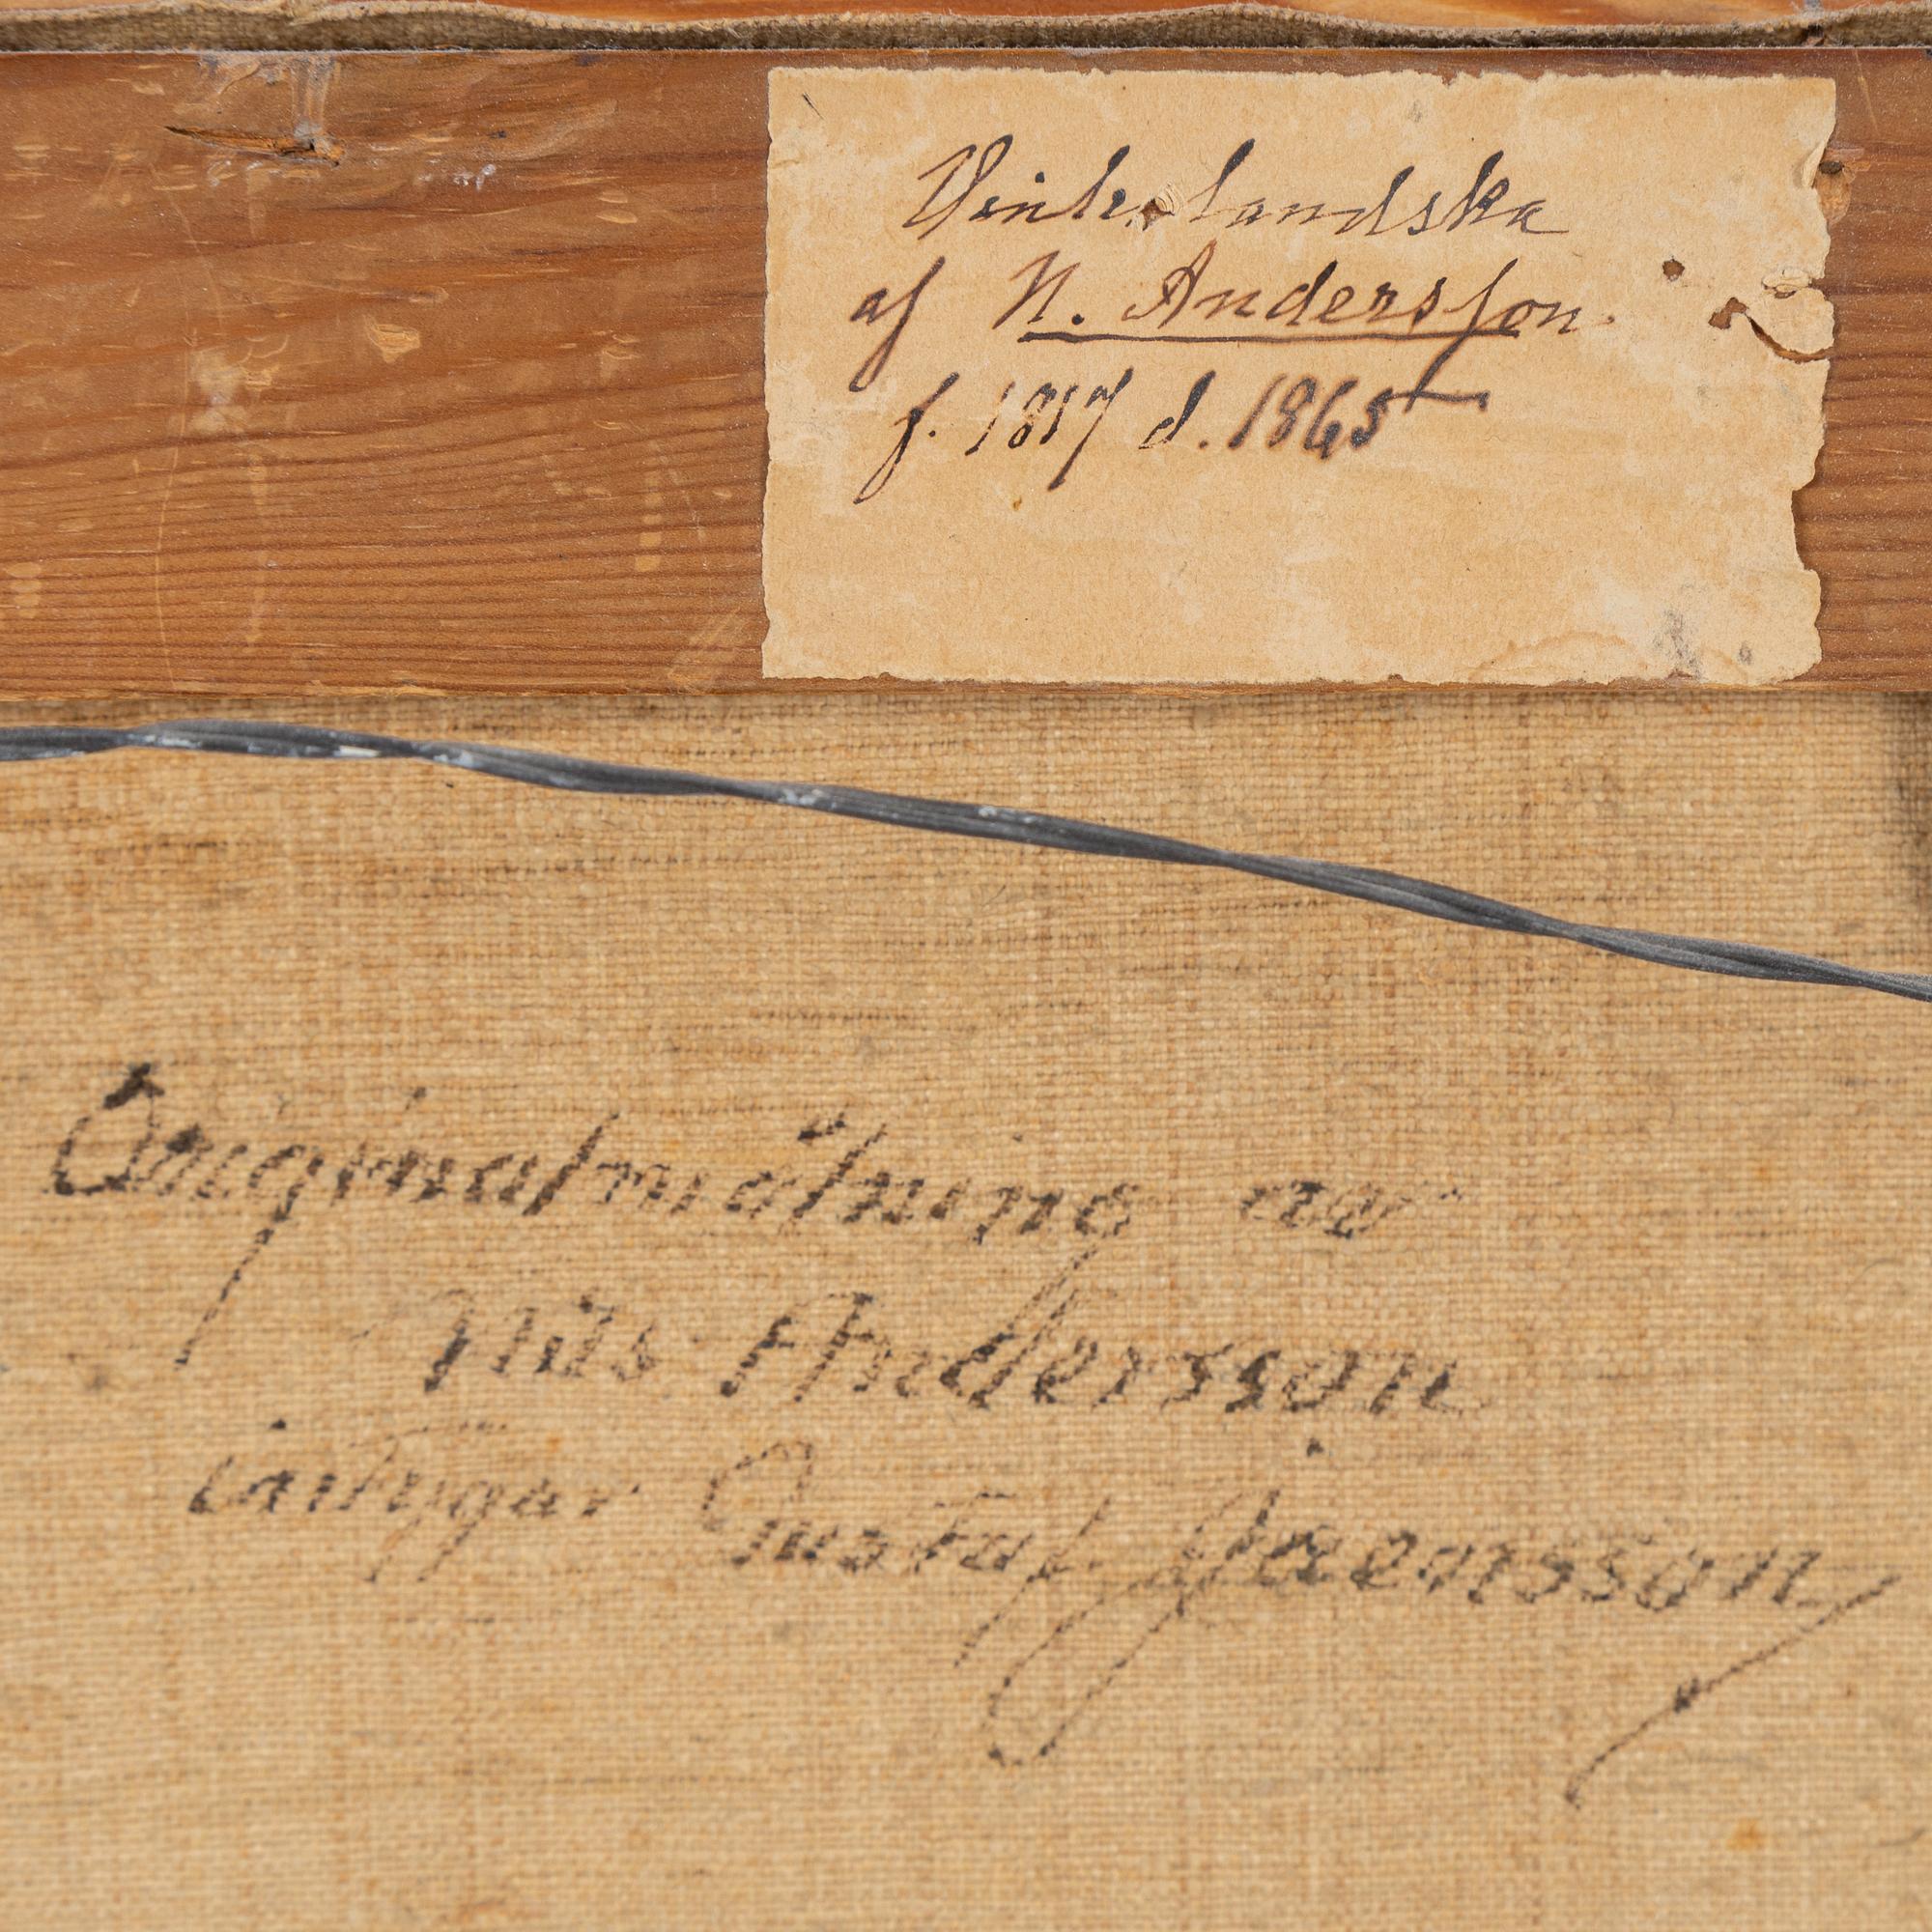 Vinterlandska
af N. Andersson.
f. 1817 d. 1865
Originalmålning av
Nils Andersson
intygar Gustaf Jaensson